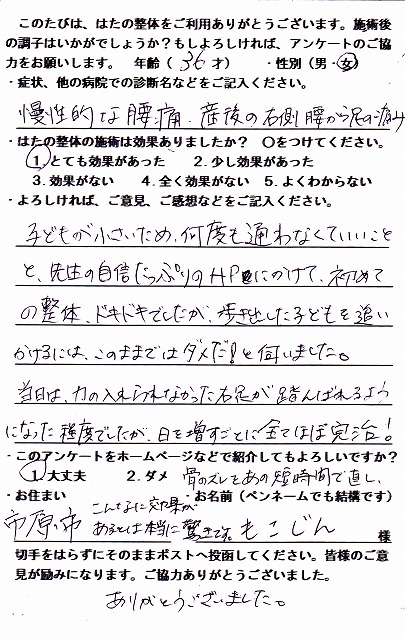 このたびは、はたの整体をご利用ありがとうございます。施術後
の調子はいかがでしょうか？もしよろしければ、アンケートのご協
力をお願いします。 年齢（ 36 才） ・性別（男・女）
・症状、他の病院での診断名などをご記入ください。
慢性的な腰痛、産後の右側腰から足の痛み
・はたの整体の施術は効果ありましたか？ ○をつけてください。
1.とても効果があった 2.少し効果があった
3.効果がない 4.全く効果がない 5.よくわからない
・よろしければ、ご意見、ご感想などをご記入ください。
子どもが小さいため、何度も通わなくていいこと
と、先生の自信たっぷりのHPにかけて、初めて
の整体、ドキドキでしたが、歩き出した子どもを追い
かけるには、このままではダメだ!と伺いました。
当日は、力の入れられなかった右足が踏んばれるよう
になった程度でしたが、日を増すごとに全てほぼ完治!
・このアンケートをホームページなどで紹介してもよろしいですか？
1.大丈夫 2.ダメ 骨のズレをあの短時間で直し、
・お住まい ・お名前（ペンネームでも結構です）
市原市 こんなに効果が
あるとは本当に驚きです。 もこじん 様
切手をはらずにそのままポストへ投函してください。皆様のご意
見が励みになります。ご協力ありがとうございました。
ありがとうございました。